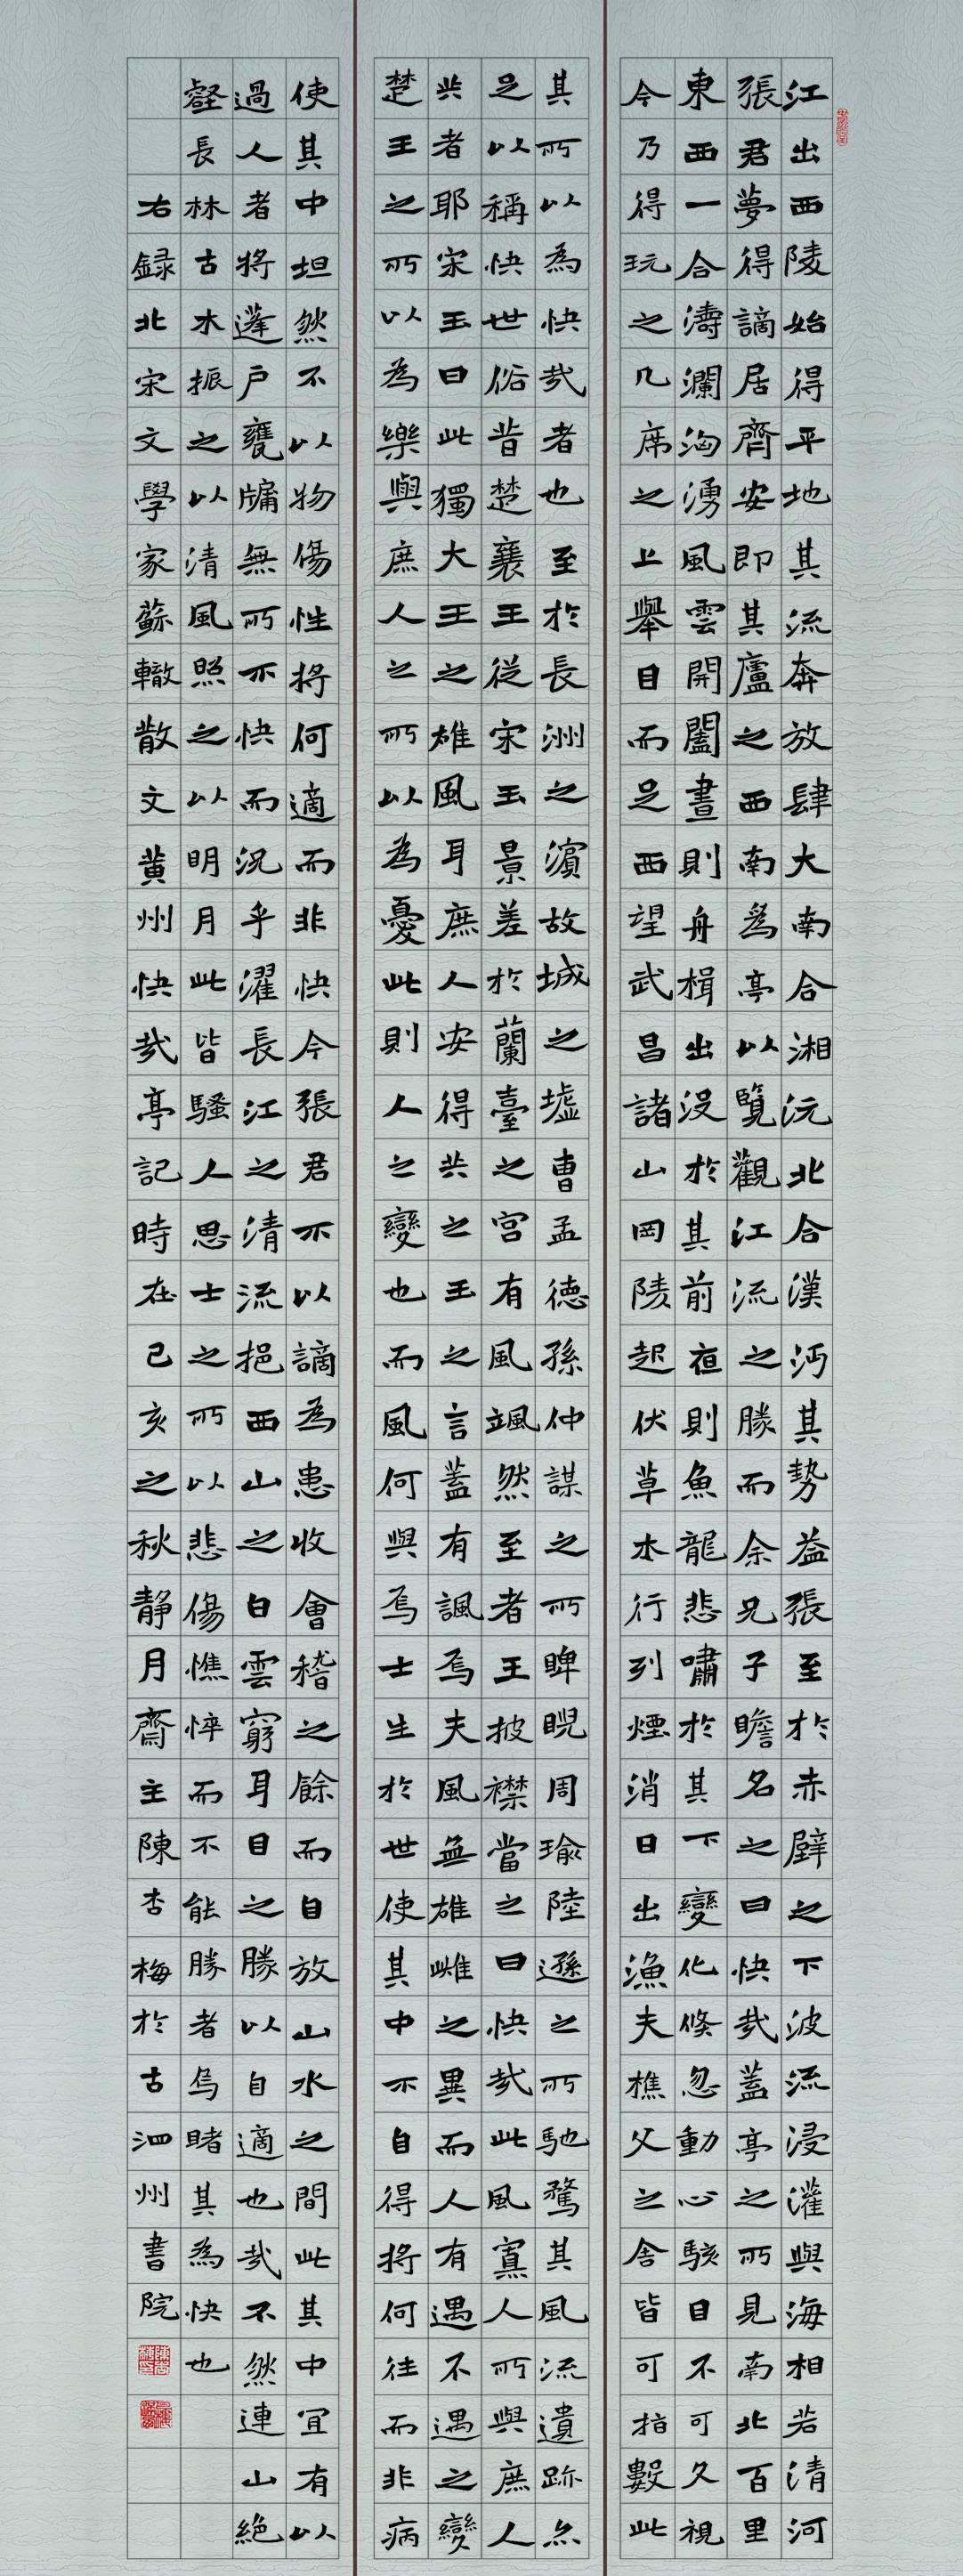 江出西陵始得平地其流奔放肆大南合湘沅北合漢沔其勢益張至於赤壁之下波流浸灌與海相若清河
張君夢得謫居齊安即其廬之西南為亭以覽觀江流之勝而余兄子瞻名之曰快哉蓋亭之所見南北百里
東西一合濤瀾洶湧風雲開闔晝則舟楫出沒於其前夜則魚龍悲嘯於其下變化倏忽動心駭目不可久視
今乃得玩之几席之上舉目而足西望武昌諸山岡陵起伏草木行列煙消日出漁夫樵父之舍皆可指數此
其所以為快哉者也至於長洲之濱故城之墟曹孟德孫仲謀之所睥睨周瑜陸遜之所馳騖其風流遺跡亦
足以稱快世俗昔楚襄王從宋玉景差於蘭臺之宮有風颯然至者王披襟當之曰快哉此風寡人所與庶人
共者耶宋玉曰此獨大王之雄風耳庶人安得共之玉之言蓋有諷焉夫風無雄雌之異而人有遇不遇之變
楚王之所以為樂與庶人之所以為憂此則人之變也而風何與焉士生於世使其中不自得將何往而非病
使其中坦然不以物傷性將何適而非快今張君不以謫為患收會稽之餘而自放山水之間此其中宜有以
過人者將蓬戶甕牖無所不快而況乎濯長江之清流挹西山之白雲窮耳目之勝以自適也哉不然連山絕
壑長林古木振之以清風照之以明月此皆騷人思士之所以悲傷憔悴而不能勝者烏睹其為快也
右錄北宋文學家蘇轍散文黃州快哉亭記時在己亥之秋靜月齋主陳杏梅於古泗州書院